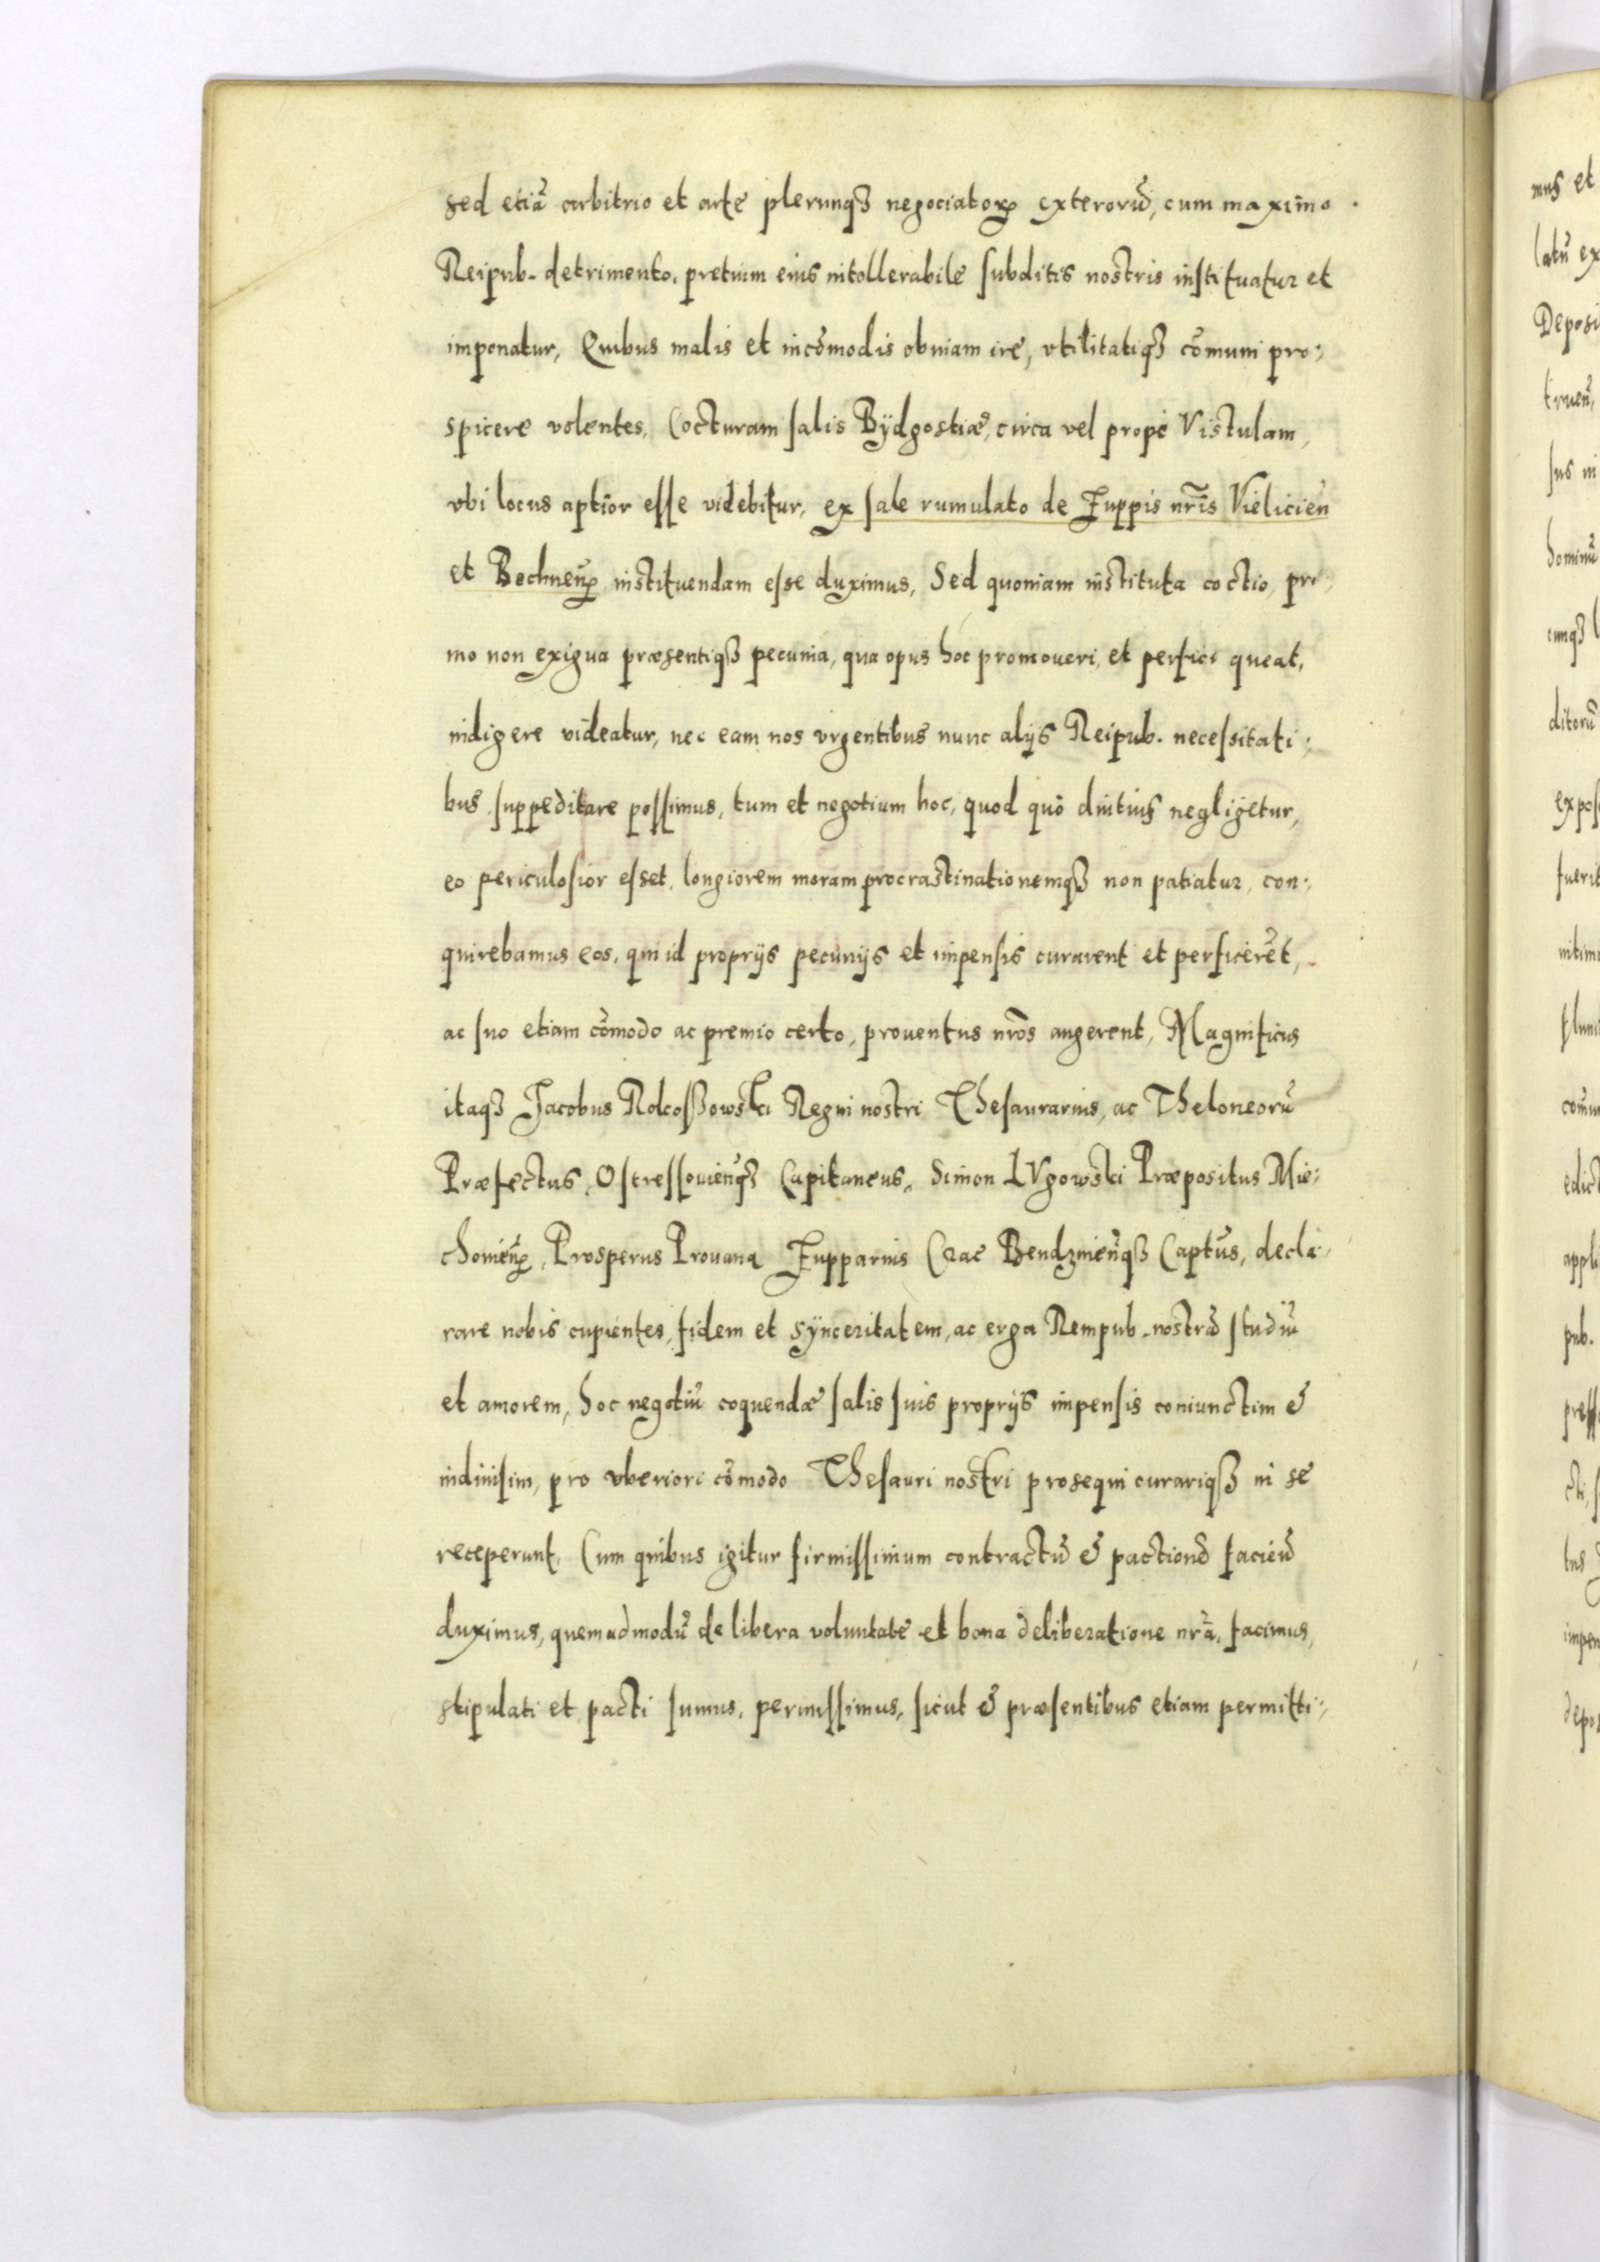 sed etiã arbitrio et arte plerunqꝫ negociatoꝝ exterorũ, cum maximo
Reipub. detrimento, pretium eius intollerabile subditis nostris instituatur et
imponatur, Quibus malis et incõmodis obuiam ire, vtilitatiqꝫ cõmuni pro:
spicere volentes, Cocturam salis Bÿdgostiæ, circa vel propè Vistulam,
vbi locus aptior esse videbitur, ex sale rumulato de Zuppis nr̃is Vieliciẽn
et Bochneñ, instituendam esse duximus, Sed quoniam instituta coctio, pri
mo non exigua præsentiqꝫ pecunia, qua opus hoc promoueri, et perfici queat,
indigere videatur, nec eam nos vrgentibus nunc alijs Reipub. necessitati:
bus suppeditare possimus, tum et negotium hoc, quod quò diutius negligetur,
eo periculosior esset, longiorem moram procrastinationemqꝫ non patiatur, con:
quirebamus eos, qui id proprijs pecunijs et impensis curarent et perficerẽt,
ac suo etiam cõmodo ac premio certo, prouentus nr̃os augerent, Magnificus
itaqꝫ Jacobus Rokossowski Regni nostri Thesaurarius, ac Theloneorũ
Præfectus, Ostressouieñqꝫ Capitaneus, Simon LVgowski Præpositus Mie:
chouieñ, Prosperus Prouana Zupparius Crac Bendzinieñqꝫ Captũs, decla:
rare nobis cupientes, fidem et sÿnceritatem, ac erga Rempub. nostrã studiũ
et amorem, hoc negotiũ coquendæ salis suis proprijs impensis coniunctim &
indiuisim, pro vberiori cõmodo Thesauri nostri prosequi curariqꝫ in se
receperunt, Cum quibus igitur firmissimum contractũ & pactionẽ facieñ
duximus, quemadmodũ de libera voluntate et bona deliberatione nr̃a, facimus,
stipulati et pacti sumus, permissimus, sicut & præsentibus etiam permitti: